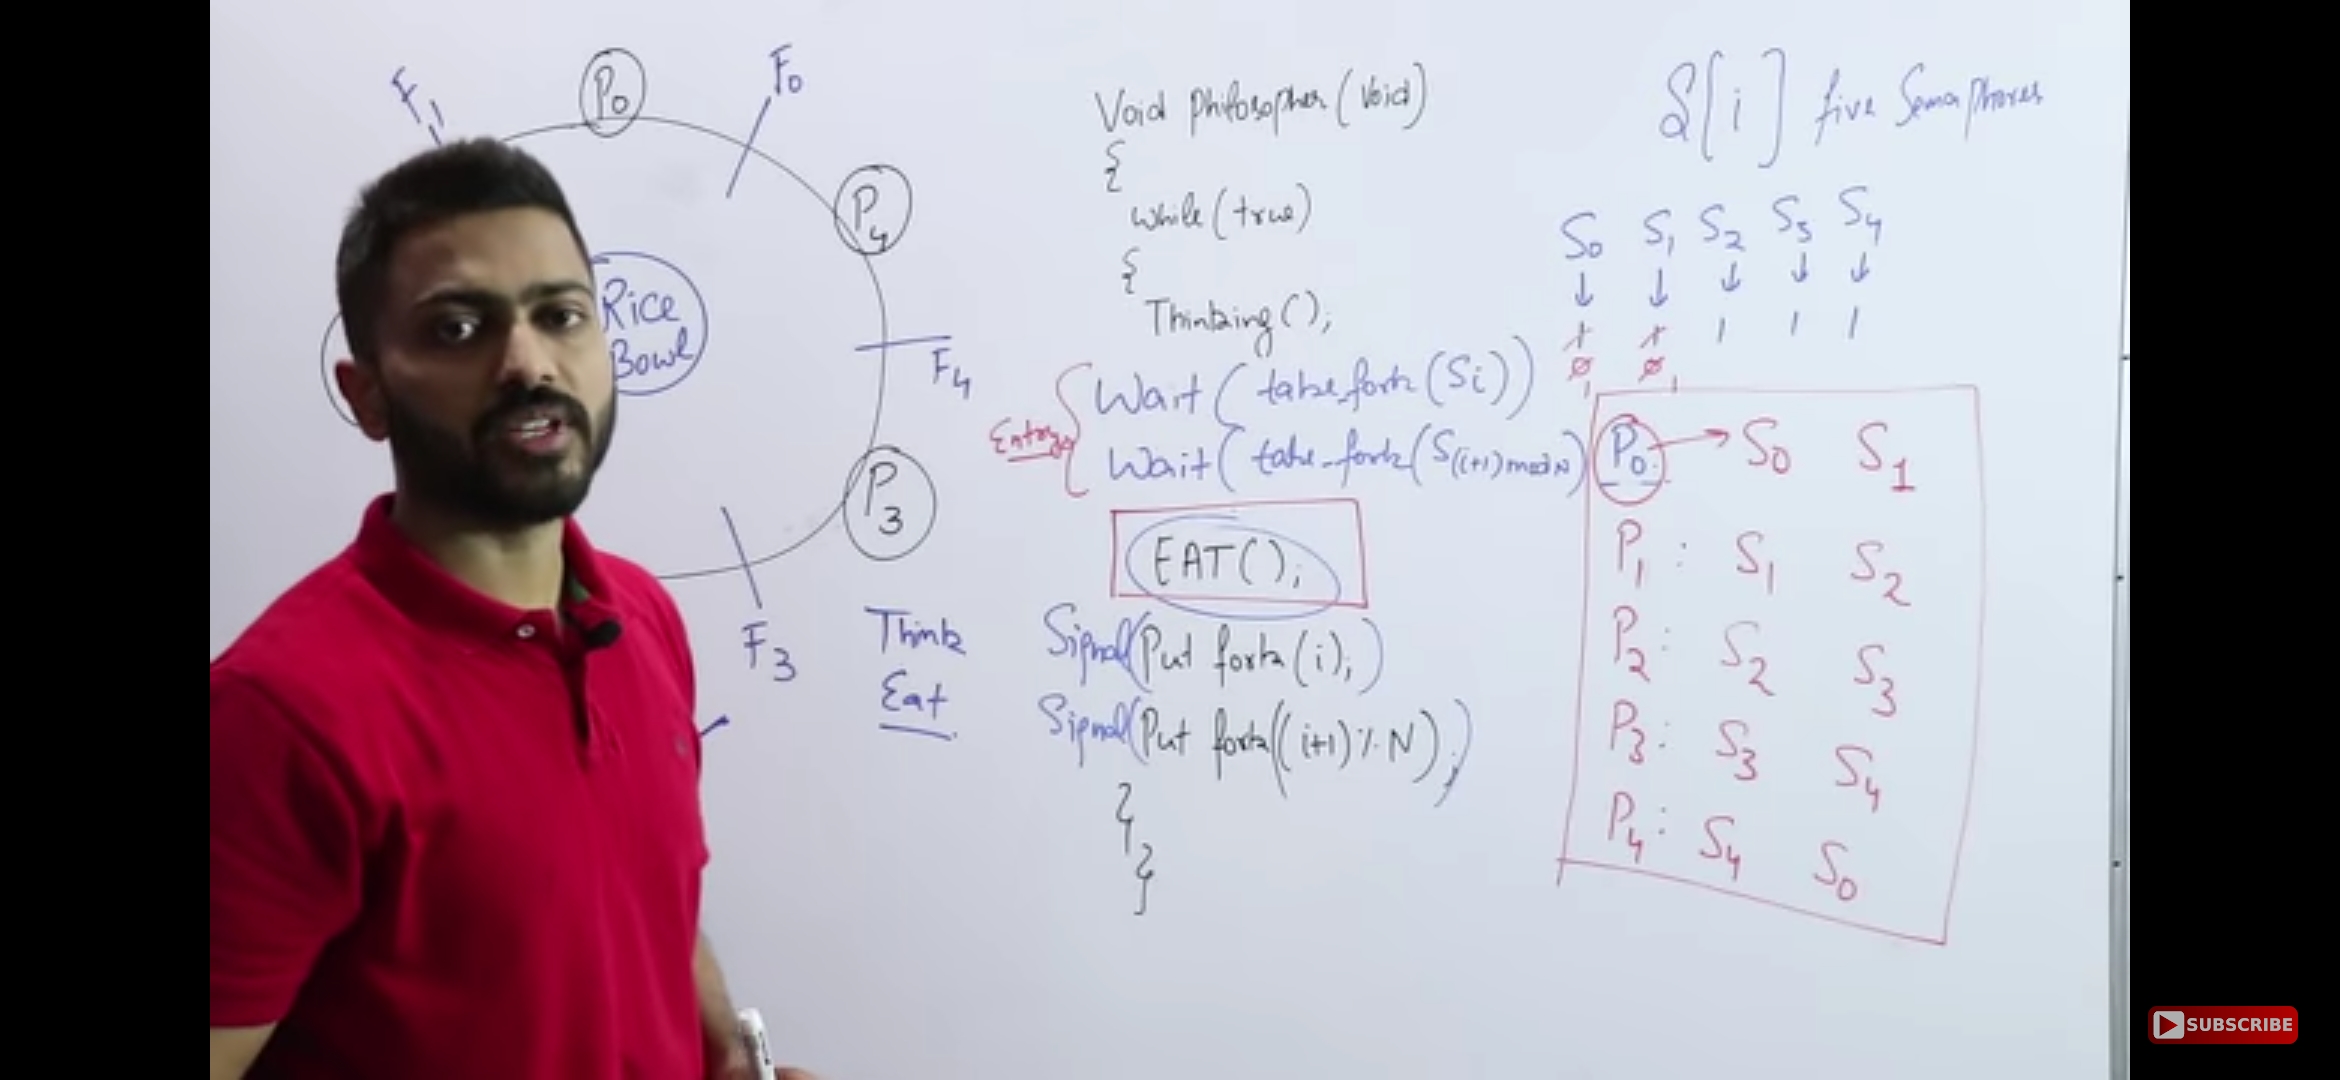 F1
P0
F0
P4
Rice
Bowl
F4
P3
F3
Think
Eat
Void Philosopher(Void)
{
while(true)
{
Thinking();
Entry
Wait(take_fork(Si))
Wait(take_fork(S(i+1)modN)
EAT();
Signal(Put fork(i);)
Signal(Put fork((i+1)%N);)
}
}
S[i] five Semaphores
S0 S1 S2 S3 S4
↓ ↓ ↓ ↓ ↓
1 1 1 1 1
0 0
1 1
P0 → S0 S1
P1: S1 S2
P2: S2 S3
P3: S3 S4
P4: S4 S0
SUBSCRIBE